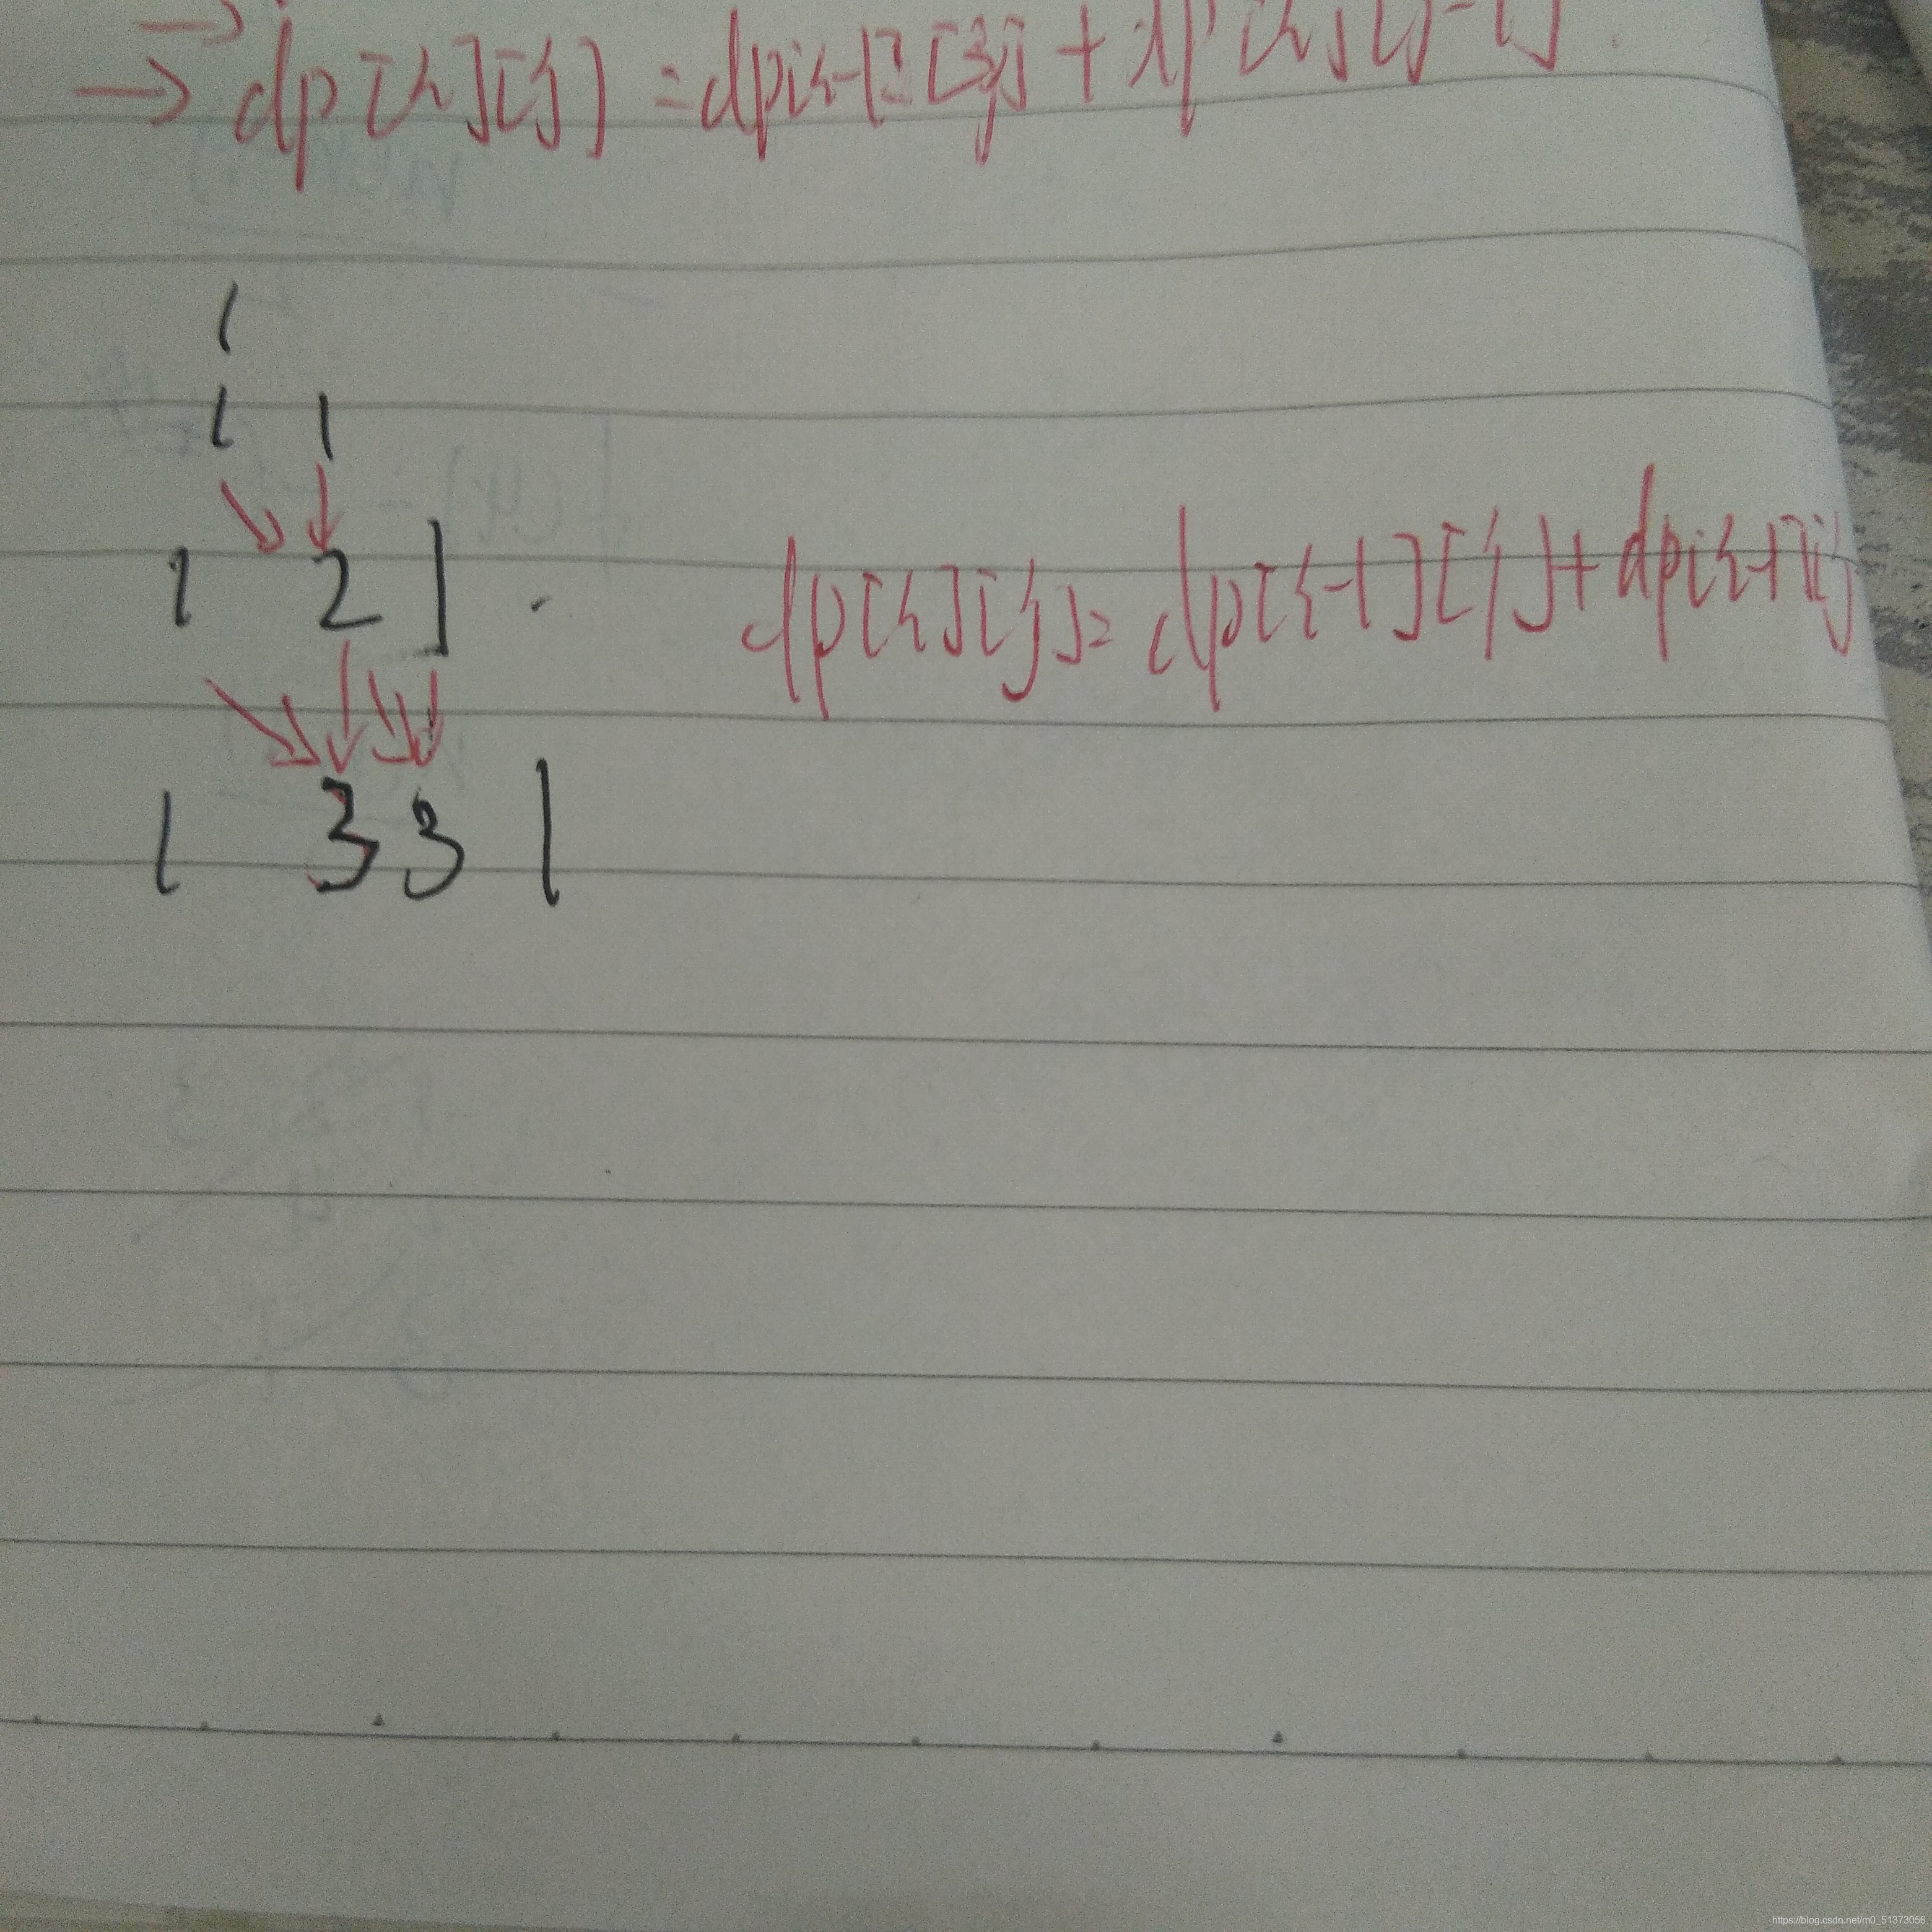 → dp[i][j] = dp[i-1][j] + dp[i][j-1]
1
1 1
1 2 1
dp[i][j] = dp[i-1][j] + dp[i-1][j
1 3 3 1
https://blog.csdn.net/m0_51373056